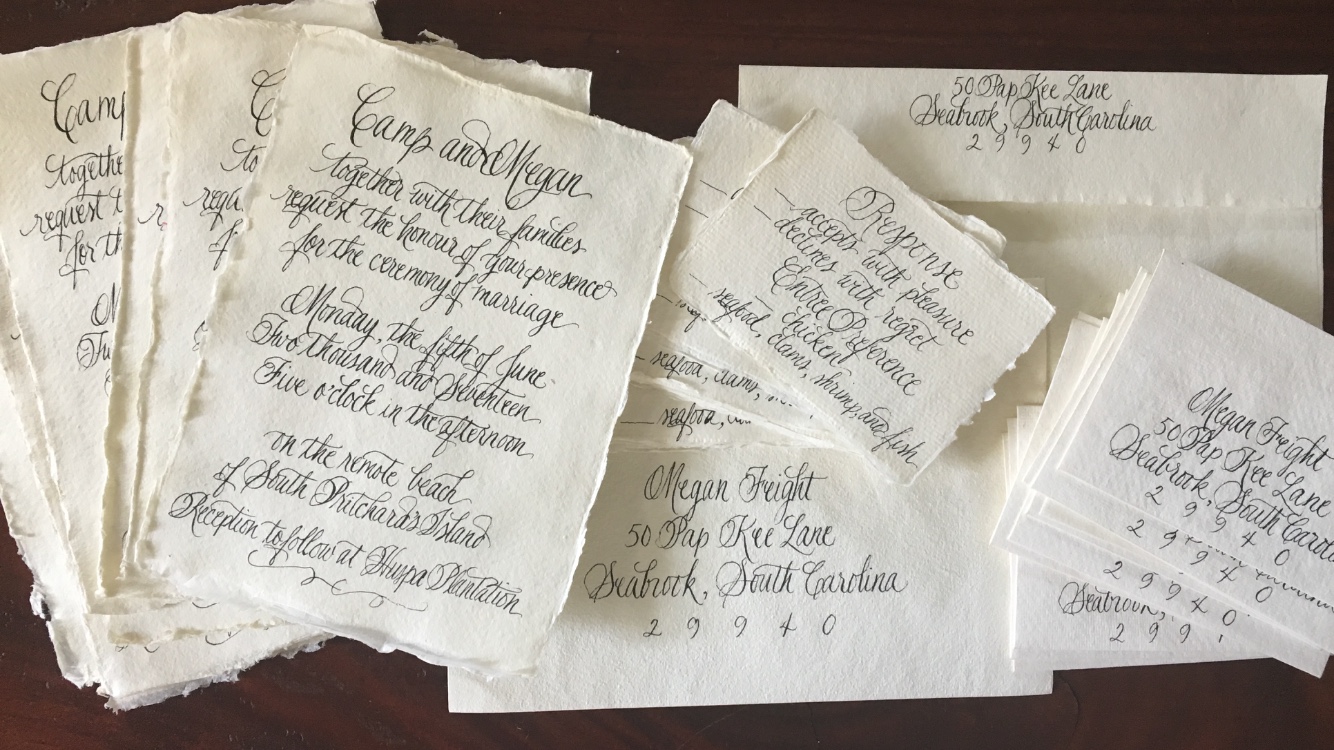 Camp
togethe
request t
for th
to
requ
f
Camp and Megan
together with their families
request the honour of your presence
for the ceremony of marriage
Monday, the fifth of June
Two thousand and Seventeen
Five o'clock in the afternoon
on the remote beach
of South Pritchards Island
Reception to follow at Huspa Plantation
50 Pap Kee Lane
Seabrook, South Carolina
29940
Response
accepts with pleasure
declines with regret
Entree Preference
chicken
seafood, clams, shrimp, and fish
seafood, clams,
seafood,
Megan Freight
50 Pap Kee Lane
Seabrook, South Carolina
29940
Megan Freight
50 Pap Kee Lane
Seabrook, South Caro
29940
29940
29940
Seabrook,
299